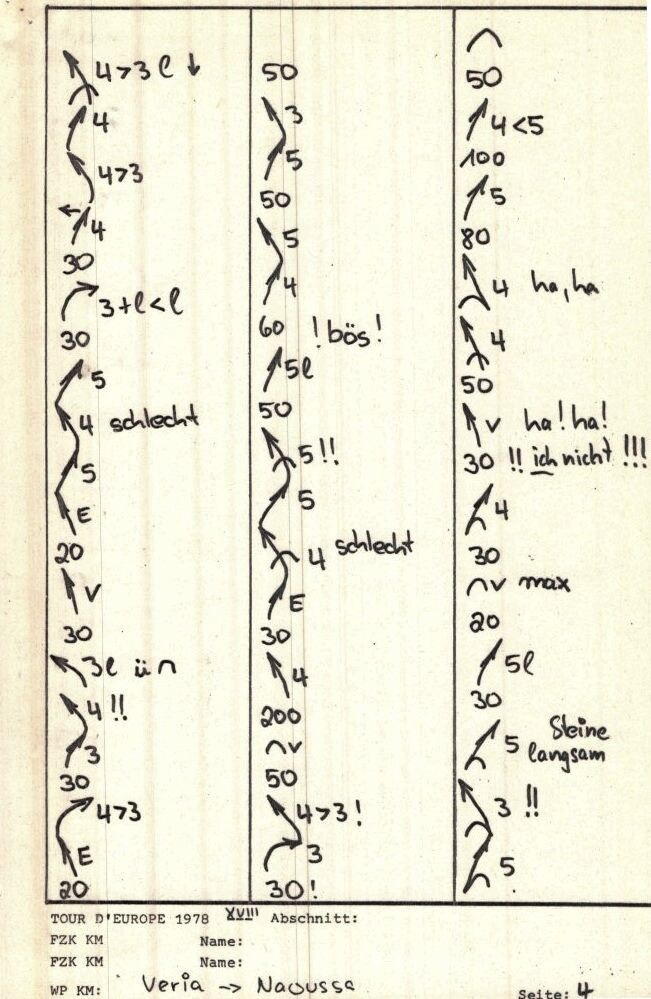 4>3 l ↓
4
4>3
4
30
3+l<l
30
5
4 schlecht
5
E
20
v
30
3l ü ∩
4 !!
3
30
4>3
E
20
50
3
5
50
5
4
60 ! bös !
5l
50
5 !!
5
4 schlecht
E
30
4
200
∩ v
50
4>3 !
3
30 !
50
4<5
100
5
80
4 ha, ha
4
50
v ha ! ha !
30 !! ich nicht !!!
4
30
∩ v max
20
5l
30
5 Steine
langsam
3 !!
5
TOUR D'EUROPE 1978 XVIII Abschnitt:
FZK KM Name:
FZK KM Name:
WP KM: Veria -> Naoussa Seite: 4